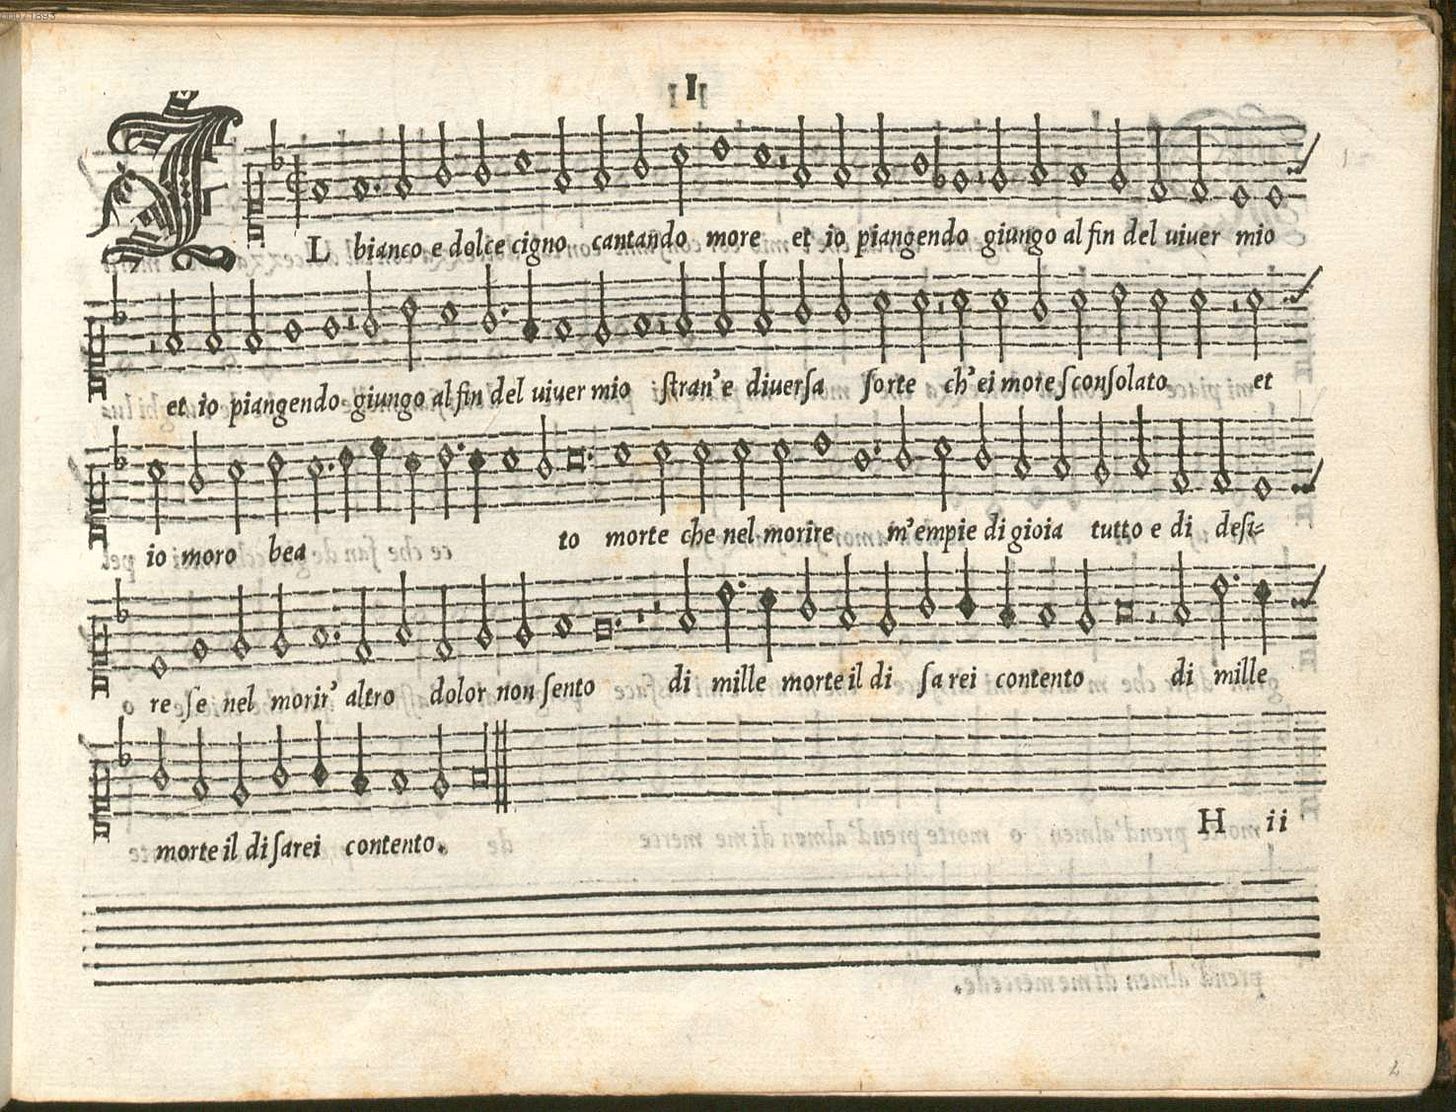 00071893
I
IL bianco e dolce cigno cantando more et io piangendo giungo al fin del uiuer mio
et io piangendo giungo al fin del uiuer mio ſtran' e diuerſa ſorte ch' ei more ſconſolato et
io moro bea to morte che nel morire m'empie di gioia tutto e di deſi-
re ſe nel morir' altro dolor non ſento di mille morte il di ſa rei contento di mille
morte il di ſarei contento.
H ii